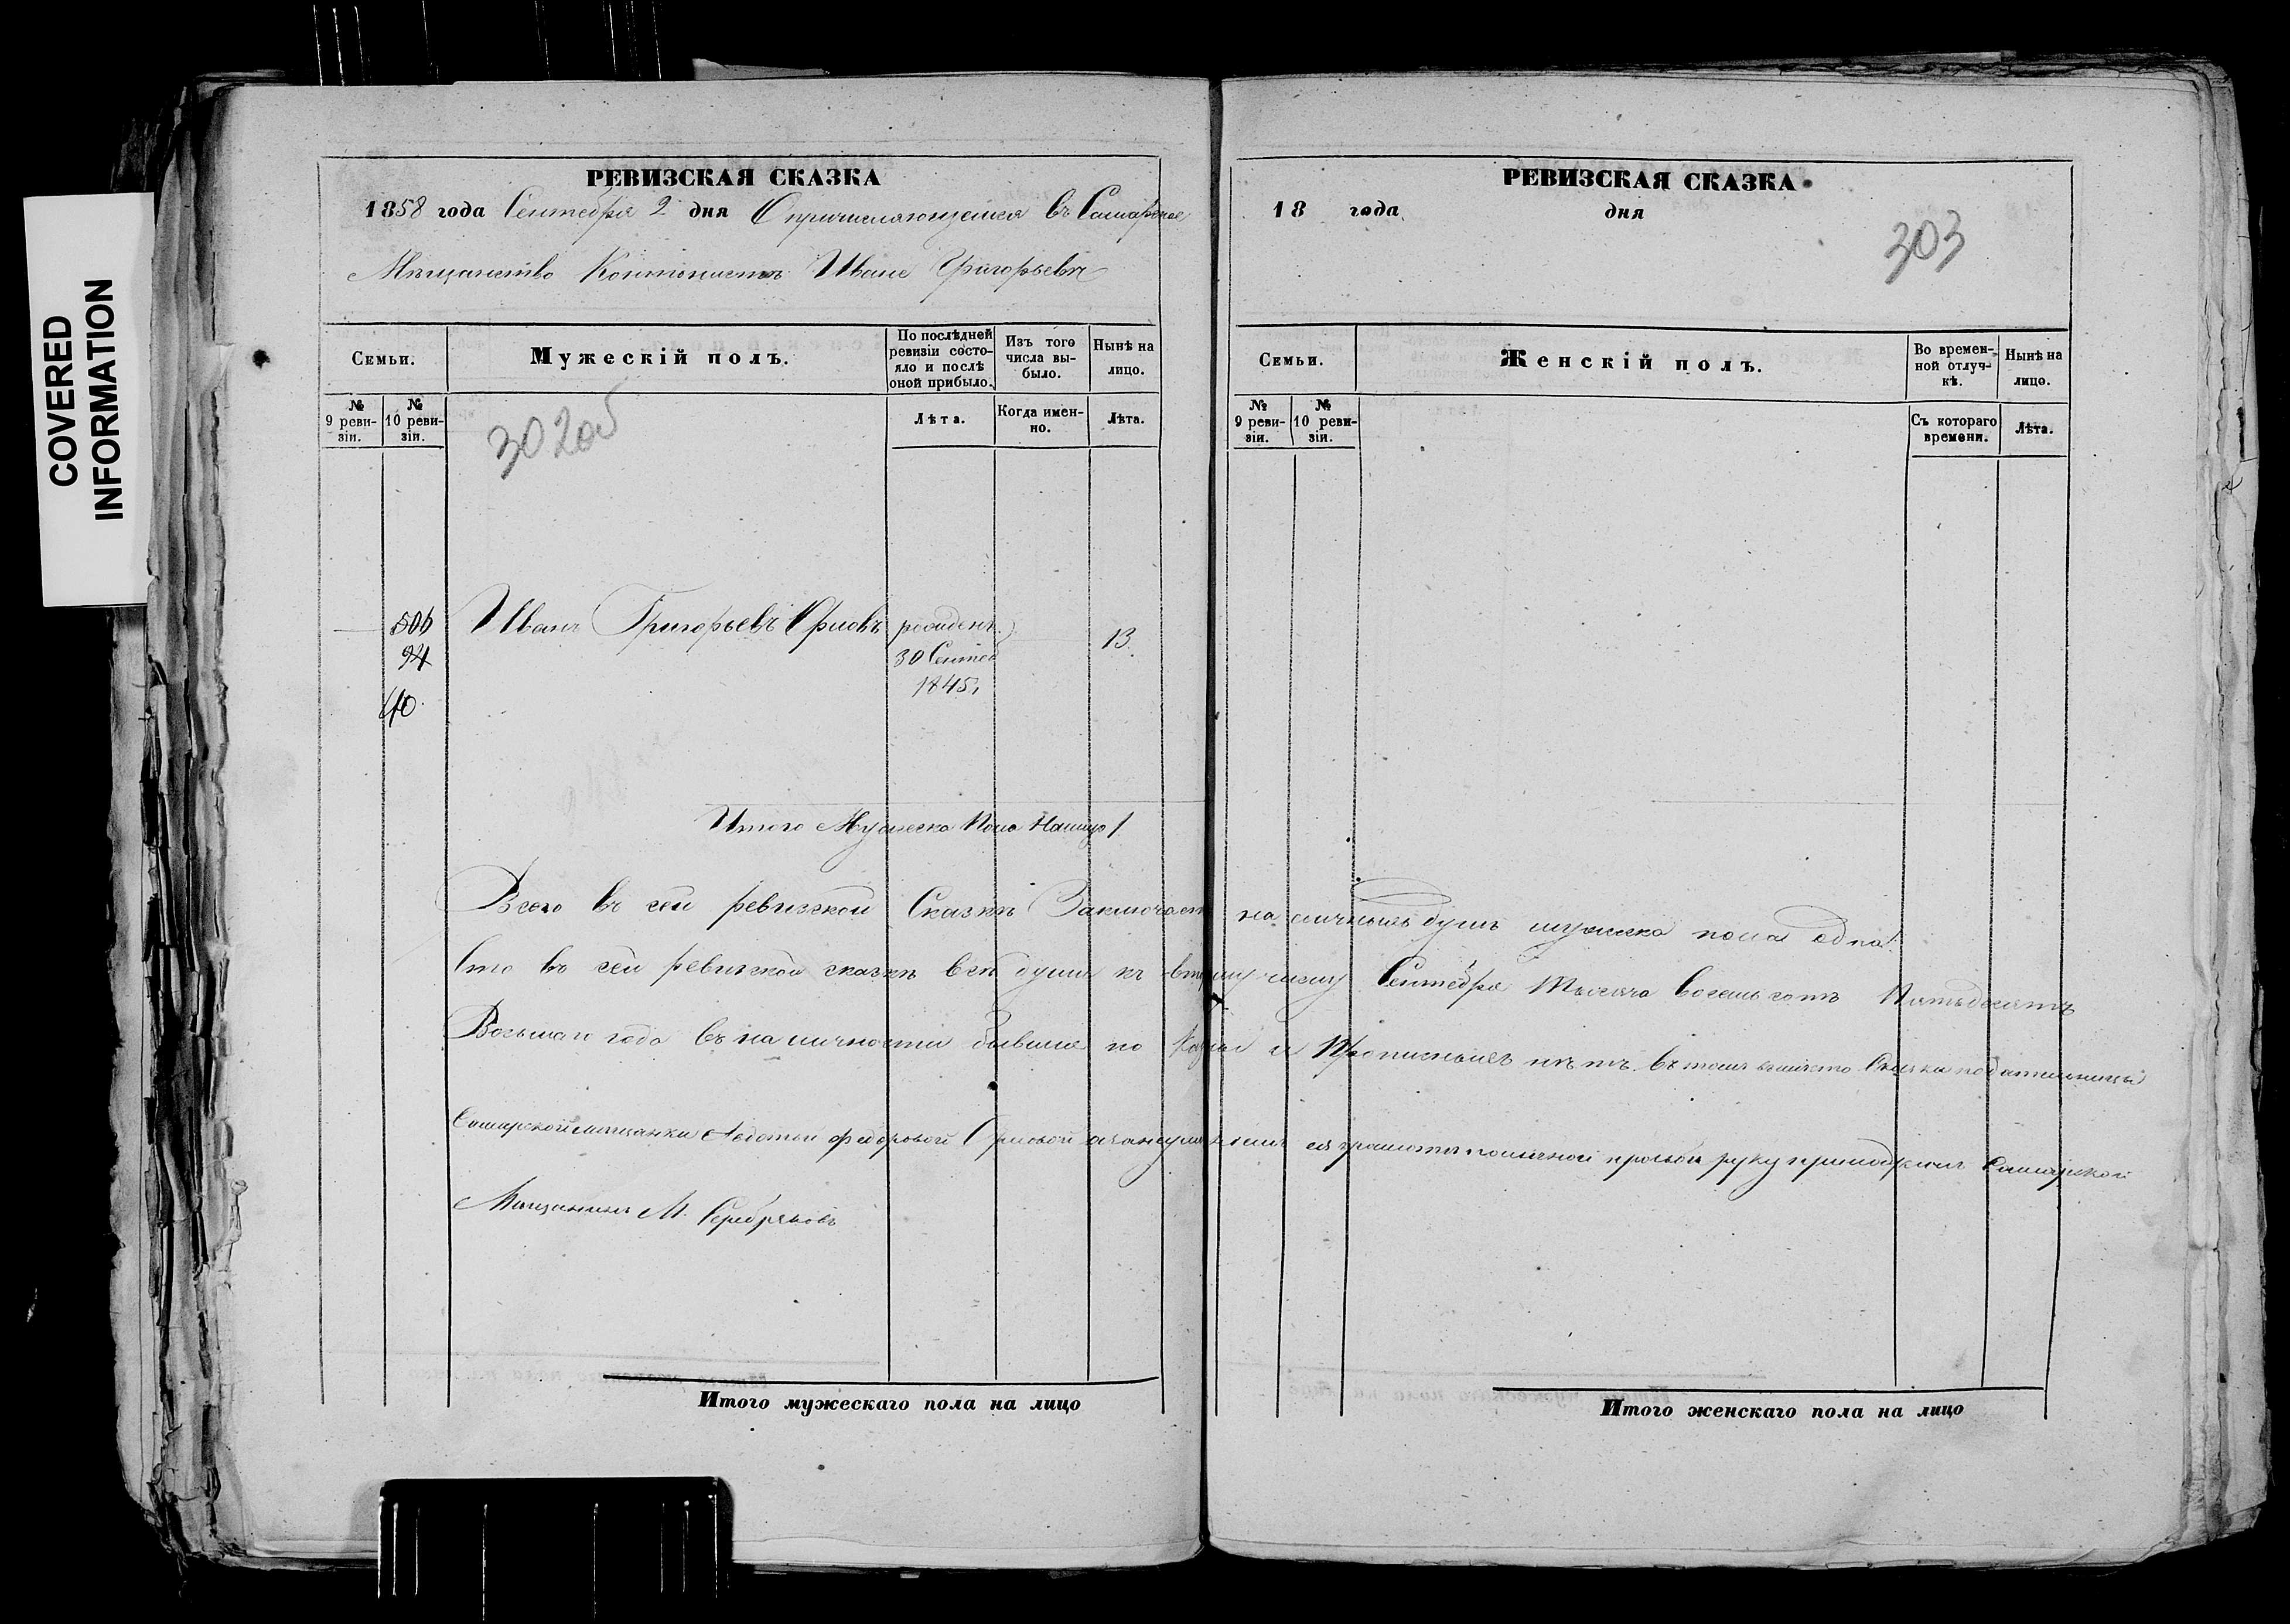 COVERED
INFORMATION
РЕВИЗСКАЯ СКАЗКА
1858 года Сентября 2 дня О причисляющемся въ Самарское
Мѣщанство Кантонистѣ Иване Григорьевѣ
Семьи.
Мужескій полъ.
По послѣдней ревизіи состояло и послѣ оной прибыло.
Изъ того числа выбыло.
Нынѣ на лицо.
№ 9 ревизіи.
№ 10 ревизіи.
Лѣта.
Когда именно.
Лѣта.
302об
506
Иванъ Григорьевъ Орловъ
рожденъ
13
94
30 Сентяб
1845
40
Итого Мужеска Пола Налицо 1
РЕВИЗСКАЯ СКАЗКА
18 года дня
303
Семьи.
Женскій полъ.
Во временной отлучкѣ.
Нынѣ на лицо.
№ 9 ревизіи.
№ 10 ревизіи.
Съ котораго времени.
Лѣта.
Всего въ сей ревизской Сказкѣ Заключает наличныхъ душъ мужеска пола одна
Что въ сей ревизской сказкѣ всѣ души къ второму числу Сентября Тысяча восемь сотъ Пятьдесятъ
Восьмаго года въ наличности бывшие по и Прописныхъ нѣтъ. въ томъ Сказки подательницы
Самарской мѣщанки Авдотьи Федоровой Орловой а занеумѣніемъ ея грамоты по личной прозьбѣ руку приложилъ Самарской
Мѣщанинъ М. Серебряковъ
Итого мужескаго пола на лицо
Итого женскаго пола на лицо